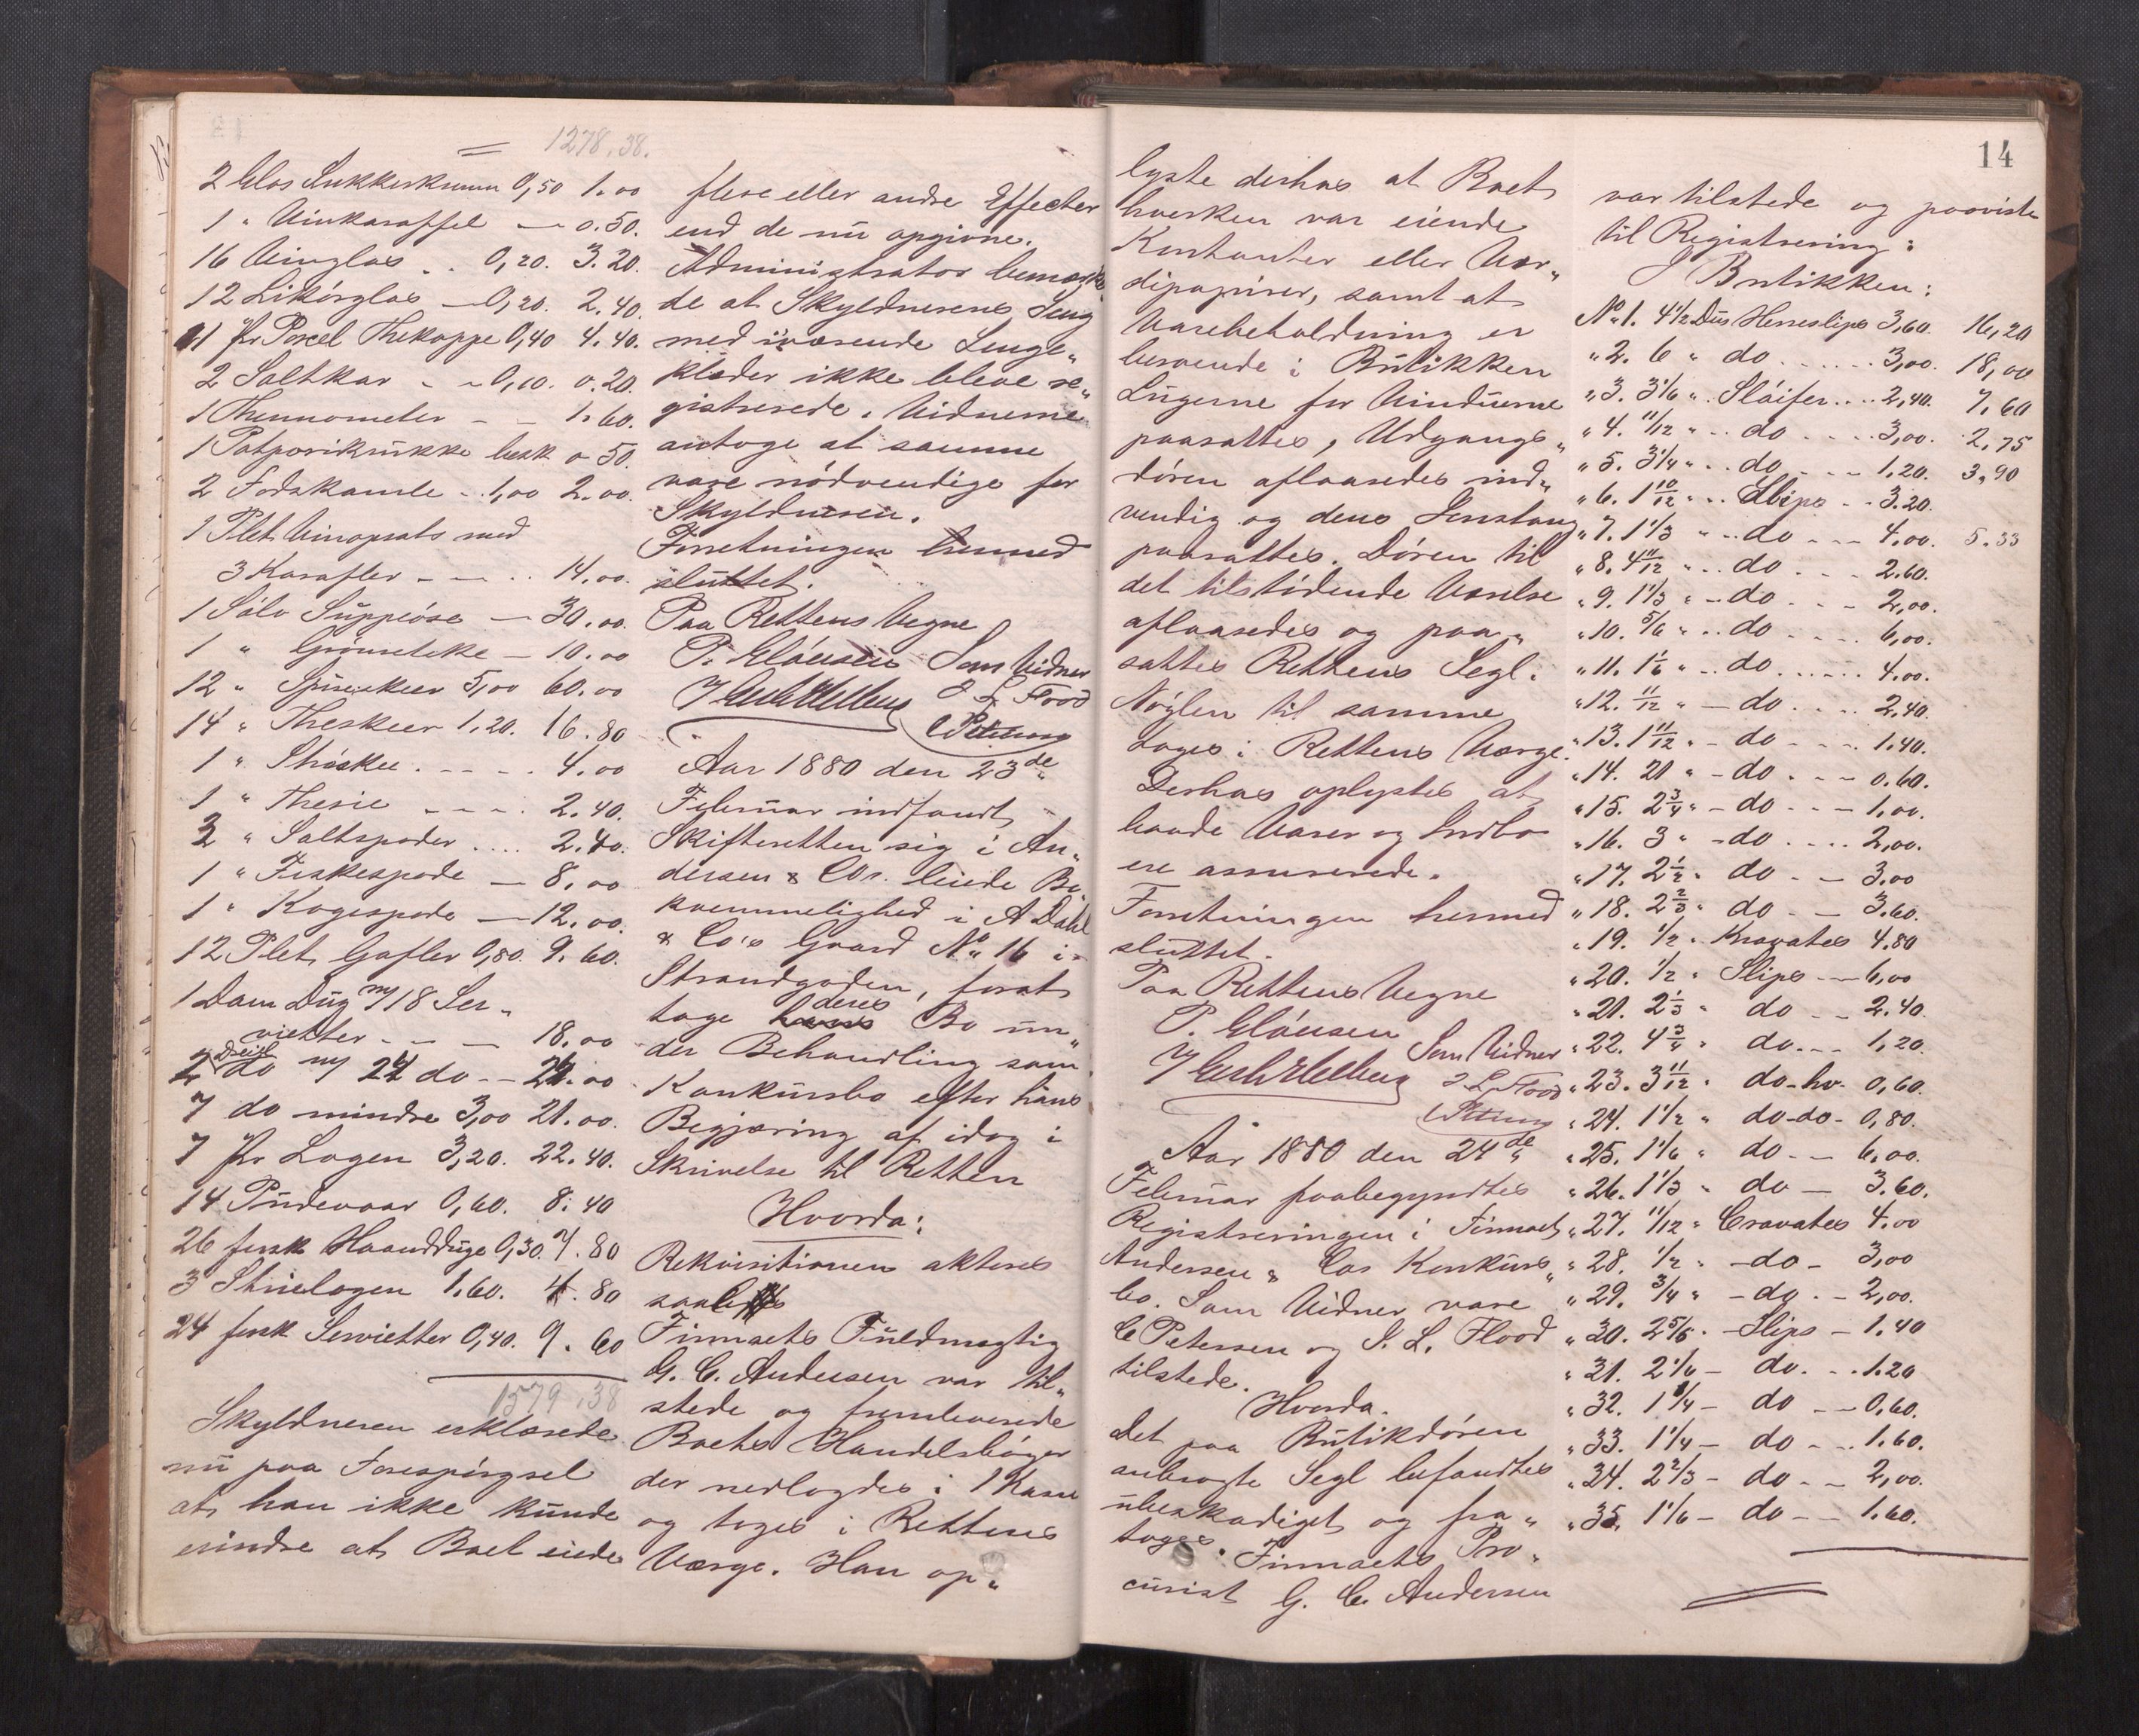 1278.38.
2 Glas Sukkerkumm 0,50 1.00
1 " Vinkaraffel — 0.50.
16 Vinglas . . 0,20. 3.20.
12 Likörglas — 0,20. 2.40.
11 Pr Porcel Thekoppe 0,40 4.40.
2 Saltkar - - 0,10. 0.20.
1 Thermometer - - 1.60.
1 Potpourikrukke besk 0 50.
2 Fodskamle - 1,00 2.00.
1 Plet Vinopsats med
3 Karafler - - . . 14.00.
1 Sölv Suppeöse — 30.00.
1 " Grönsdske — 10.00
12 " Spiseskeer 5,00 60.00
14 " Theskeer 1.20. 16.80
1 " Ströskee . - - . 4.00
1 " Thesie - - - . 2.40.
2 " Saltspader . . . . 2.40.
1 " Fiskespade — 8.00
1 " Kagespade — 12.00.
12 Plet Gafler 0,80. 9.60.
1 Dam Dug m/ 18 Ser„
vietter - - — 18.00
2 Dreil do m/ 24 do - - 24.00
7 do mindre 3,00 21.00.
7 Pr Lagen 3,20. 22.40.
14 Pudevaar 0,60. 8.40
26 forsk Haandduge 0,30. 7.80
3 Struelagen 1.60. 4.80
24 forsk Servietter 0,40. 9.60
1579.38
Skyldneren erklærede
nu paa Forespörgsel
at han ikke kunde
erindre at Boet eiede
flere eller andre Effecter
end de nu opgivne.
Administrator bemærke„
de at Skyldnerens Seng
med iværende Senge„
klæder ikke bleve re„
gistrerede. Vidnerne
antoge at samme
vare nödvendige for
Skyldneren.
Forretningen hermed
sluttet.
Paa Rettens Vegne
P. Clausen Som Vidner
J. L. Flood
C Petersen
Aar 1880 den 23de
Februar indfandt
Skifteretten sig i An„
dersen & Cos. leiede Be„
kvemmelighed i A Dahl
& Co's Gaard No 16 i
Strandgaden, forat
tage deres Bo un„
der Behandling som
Konkursbo efter hans
Begjæring af idag i
Skrivelse til Retten
Hvorda:
Rekvisitionen akteres
saalydes
Firmaets Fuldmægtig
G. C. Andersen var til„
stede og fremleverede
Boets Handelsböger
der nedlagdes i 1 Kasse
og toges i Rettens
Værge. Han op„
14
lyste derhos at Boet
hverken var eiende
Kontanter eller Vær„
dipapirer, samt at
Varebeholdning er
beroende i Butikken
Lugerne for Vinduerne
paasattes, Udgangs„
dören aflaasedes ind„
vendig og dens Jernstang
paasattes. Dören til
det tilstödende Værelse
aflaasedes og paa„
sattes Rettens Segl.
Nöglen til samme
toges i Rettens Værge.
Derhos oplystes at
baade Varer og Indbo
ere assurerede.
Forretningen hermed
sluttet.
Paa Rettens Vegne
P. Clausen
Som Vidner
J. L. Flood
C Petersen
Aar 1880 den 24de
Februar paabegyndtes
Registreringen i Firmaet
Andersen & Cos Konkurs„
bo. Som Vidner vare
C Petersen og J. L. Flood
tilstede.
Hvorda.
Det paa Butikdören
anbragte Segl befandtes
ubeskadiget og fra„
toges. Firmaets Pro„
curist G. C. Andersen
var tilstede og paaviste
til Registrering:
I Butikken:
No 1. 4 1/2 Dus Herreslips 3,60. 16,20
" 2. 6 " do . . . . . . 3,00. 18,00
" 3. 3 1/6 " . Slöifer . . . . 2,40. 7,60
" 4. 11/12 " . . do . . . . 3,00. 2,75
" 5. 3 1/4 " . . do . . - - 1,20. 3,90
" 6. 1 10/12 " . . Slips - - 3.20.
" 7. 1 1/3 " . . do - - - 4.00. 5.33
" 8. 4 11/12 " . . do . . - 2.60.
" 9. 1 1/3 " - do . - - 2,00.
" 10. 5/6 " . . do . . . . 6,00.
" 11. 1 1/6 " . . do . . . . . 4.00.
" 12. 11/12 " — do . . . . 2,40.
" 13. 1 11/12 " - do - - - . 1.40.
" 14. 21 " - do . . - - 0.60.
" 15. 2 3/4 " - do . . - 1,00.
" 16. 3 " - do . . . . 2,00.
" 17. 2 1/2 " do . - — 3.00
" 18. 2 2/3 " do . - — 3.60.
" 19. 1/2 " Kravates 4.80
" 20. 1/2 " Slips — 6,00
" 21. 2 1/3 " do . — 2.40.
" 22. 4 3/4 " do . - - 1,20.
" 23. 3 11/12 " do - hv. 0,60.
" 24. 1 1/2 " do - do - 0,80.
" 25. 1 1/6 " do - - 6,00.
" 26. 1 1/3 " do — 3.60.
" 27. 11/12 " Cravates 4.00
" 28. 1/2 " - do - 3,00
" 29. 3/4 " - do . - 2,00.
" 30. 2 5/6 . - Slips - 1.40
" 31. 2 1/6 — do . - . 1.20
" 32. 1 1/4 — do . - 0,60.
" 33. 1 1/4 — do - - . 1.60.
" 34. 2 2/3 — do . - 2,00.
" 35. 1 1/6 — do - - 1.60.